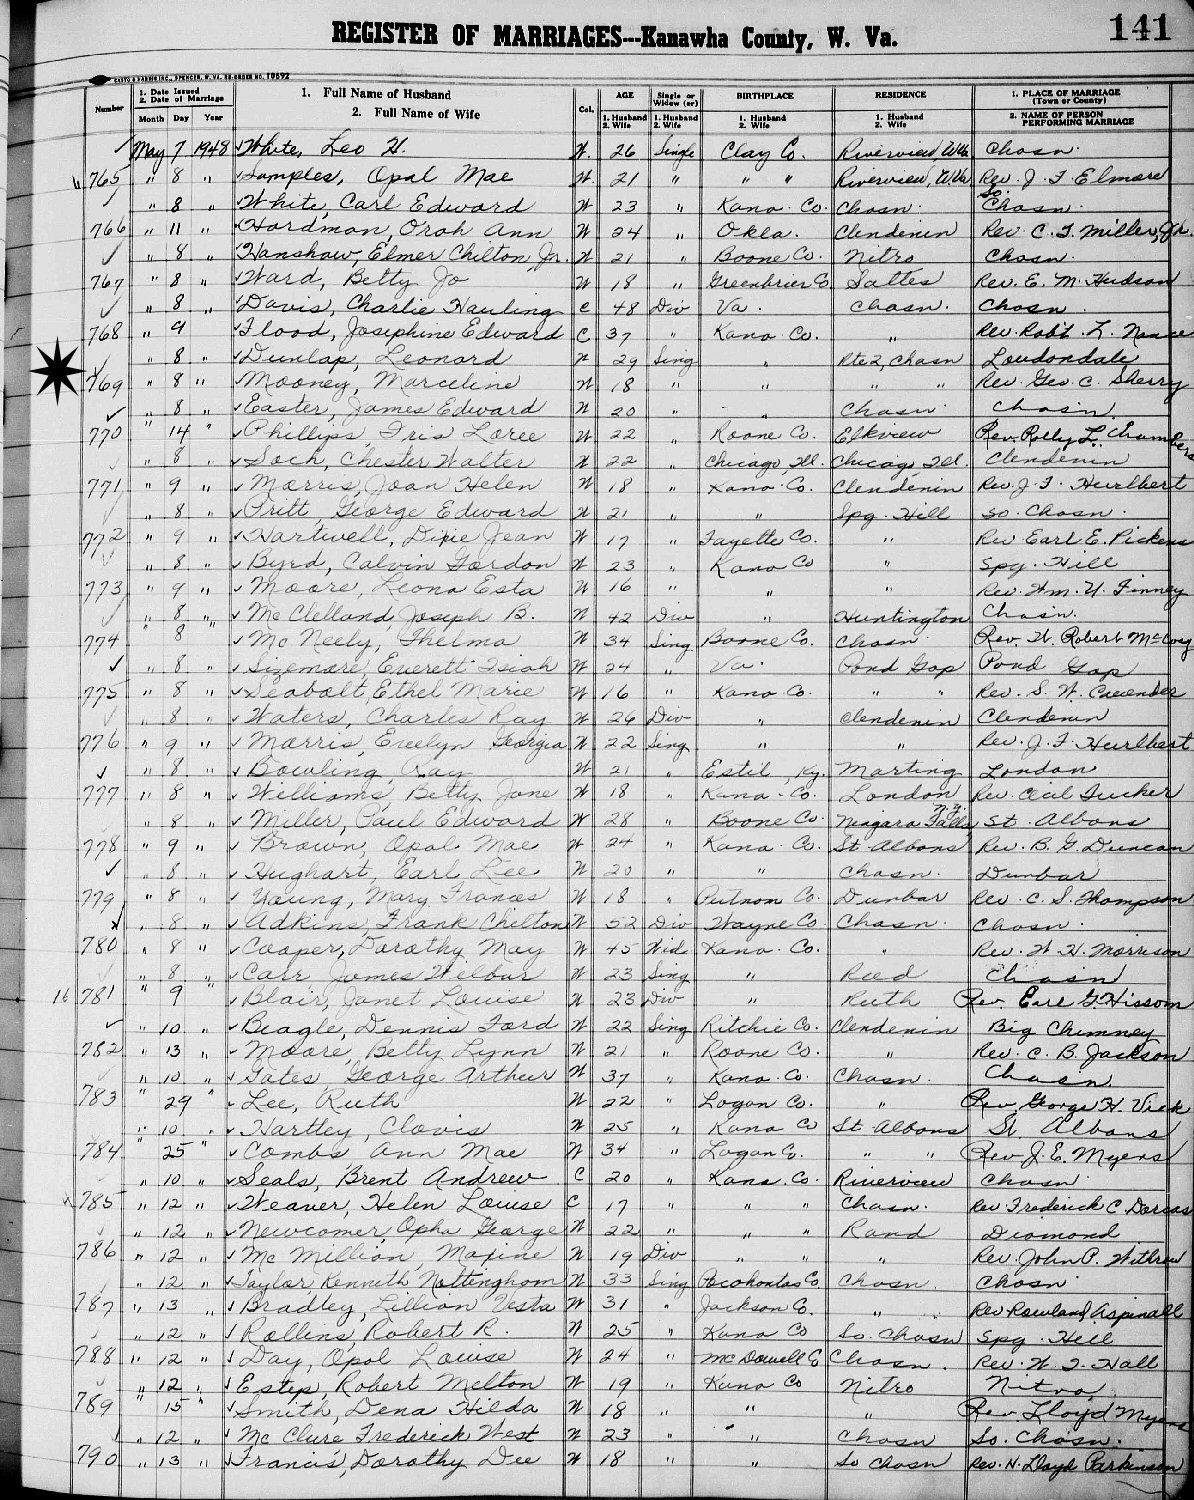 141
REGISTER OF MARRIAGES---Kanawha County, W. Va.
CASTO & HARRIS INC., SPENCER, W. VA. RE-ORDER NO. 10692
Number 1. Date Issued 2. Date of Marriage Month Day Year 1. Full Name of Husband 2. Full Name of Wife Col. AGE 1. Husband 2. Wife Single or Widow (er) 1. Husband 2. Wife BIRTHPLACE 1. Husband 2. Wife RESIDENCE 1. Husband 2. Wife 1. PLACE OF MARRIAGE (Town or County) 2. NAME OF PERSON PERFORMING MARRIAGE
May 7 1948 White, Leo H. W. 26 Single Clay Co. Riverview, W.Va Chasn.
765 " 8 " Samples, Opal Mae W. 21 " " " Riverview, W.Va Rev. J. F. Elmore
" 8 " White, Carl Edward W 23 " Kana. Co. Chasn. So. Chasn.
766 " 11 " Hardman, Orah Ann W 24 " Okla. Clendenin Rev. C. F. Miller, Jr.
" 8 " Hanshaw, Elmer Chilton, Jr. W 21 " Boone Co. Nitro Chasn.
767 " 8 " Ward, Betty Jo W 18 " Greenbrier Co Sattes Rev. E. M. Hudson
" 8 " Davis, Charlie Hauling C 48 Div Va. Chasn. Chasn
768 " 9 " Flood, Josephine Edward C 37 " Kana Co. " Rev. Robt. L. Nance
" 8 " Dunlap, Leonard W 29 Sing " Rte 2, Chasn Loudondale
769 " 8 " Mooney, Marceline W 18 " " " " Rev. Geo. C. Sherry
" 8 " Easter, James Edward W 20 " " Chasn. Chasn.
770 " 14 " Phillips, Iris Loree W 22 " Roane Co. Elkview Rev. Rolly L. Chambers
" 8 " Soch, Chester Walter W 22 " Chicago, Ill. Chicago, Ill. Clendenin
771 " 9 " Morris, Joan Helen W 18 " Kana. Co. Clendenin Rev. J. F. Hurlbert
" 8 " Pritt, George Edward W 21 " " Spg. Hill So. Chasn.
772 " 9 " Hartwell, Dixie Jean W 17 " Fayette Co. " Rev Earl E. Pickens
" 8 " Byrd, Calvin Gordon W 23 " Kana Co " Spg. Hill
773 " 9 " Moore, Leona Esta W 16 " " " Rev. Wm. H. Finney
" 8 " McClelland, Joseph B. W 42 Div " Huntington Chasn.
774 " 8 " McNeely, Thelma W 34 Sing Boone Co. Chasn Rev. W. Robert McCoy
" 8 " Sizemore, Everett Isiah W 24 " Va. Pond Gap Pond Gap
775 " 8 " Seabolt, Ethel Marie W 16 " Kana Co. " " Rev. S. W. Cavender
" 8 " Waters, Charles Ray W 26 Div " Clendenin Clendenin
776 " 9 " Morris, Evelyn Georgia W 22 Sing " " Rev. J. F. Hurlbert
" 8 " Bowling, Ray W 21 " Estil, Ky. Marting London
777 " 8 " Williams, Betty Jane W 18 " Kana. Co. London Rev. Cecil Tucker
" 8 " Miller, Paul Edward W 28 " Boone Co. Niagara Falls, N.Y. St. Albans
778 " 9 " Brown, Opal Mae W 24 " Kana. Co. St Albans Rev. B. G. Duncan
" 8 " Hughart, Earl Lee W 20 " " Chasn. Dunbar
779 " 8 " Young, Mary Frances W 18 " Putnam Co. Dunbar Rev. C. S. Thompson
" 8 " Adkins, Frank Chilton W 52 Div Wayne Co Chasn. Chasn.
780 " 8 " Cooper, Dorothy May W 45 Wid. Kana. Co. " Rev. W. H. Morrison
" 8 " Carr James Wilbur W 23 Sing " Reed Chasn
16 781 " 9 " Blair, Janet Louise W 23 Div " Ruth Rev. Earl G. Hissom
" 10 " Beagle, Dennis Ford W 22 Sing Ritchie Co. Clendenin Big Chimney
782 " 13 " Moore, Betty Lynn W 21 " Roane Co. " Rev. C. B. Jackson
" 10 " Gates, George Arthur W 37 " Kana. Co. Chasn. Chasn.
783 " 29 " Lee, Ruth W 22 " Logan Co. " Rev. George H. Vick
" 10 " Hartley, Clovis W 25 " Kana Co St Albans St. Albans
784 " 25 " Combs Ann Mae W 34 " Logan Co. " " Rev J. E. Myers
" 10 " Seals, Brent Andrew C 20 " Kana. Co. Riverview Chasn.
785 " 12 " Weaver, Helen Louise C 17 " " " Chasn. Rev Frederick C Dorcas
" 12 " Newcomer, Opha George W 22 " " " Rand Diamond
786 " 12 " McMillion, Maxine W 19 Div " " " Rev. John P. Withrow
" 12 " Taylor, Kenneth Nottingham W 33 Sing Pocahontas Co Chasn. Chasn.
787 " 13 " Bradley, Lillian Vesta W 31 " Jackson Co. " Rev Rowland Aspinall
" 12 " Rollins, Robert R. W 25 " Kana Co So. Chasn Spg. Hill
788 " 12 " Day, Opal Louise W 24 " McDowell Co Chasn. Rev. W. F. Hall
" 12 " Estep, Robert Melton W 19 " Kana Co Nitro Nitro
789 " 15 " Smith, Dena Hilda W 18 " " " Rev. Lloyd Myers
" 12 " McClure Frederick West W 23 " " Chasn So. Chasn.
790 " 13 " Francis, Dorothy Dee W 18 " " So Chasn Rev. N. Lloyd Parkinson